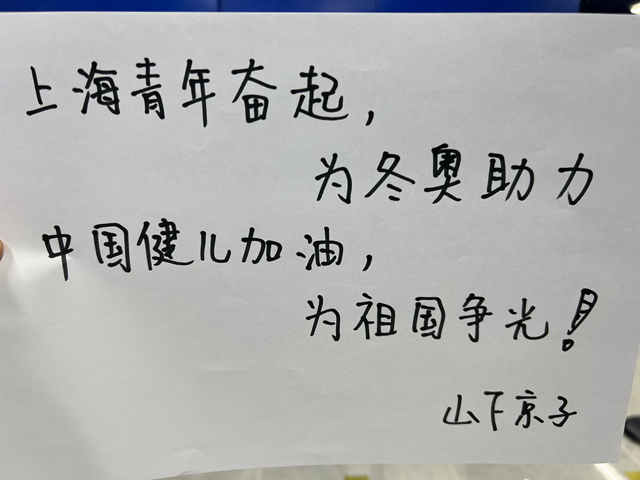 上海青年奋起，
为冬奥助力
中国健儿加油，
为祖国争光！
山下京子